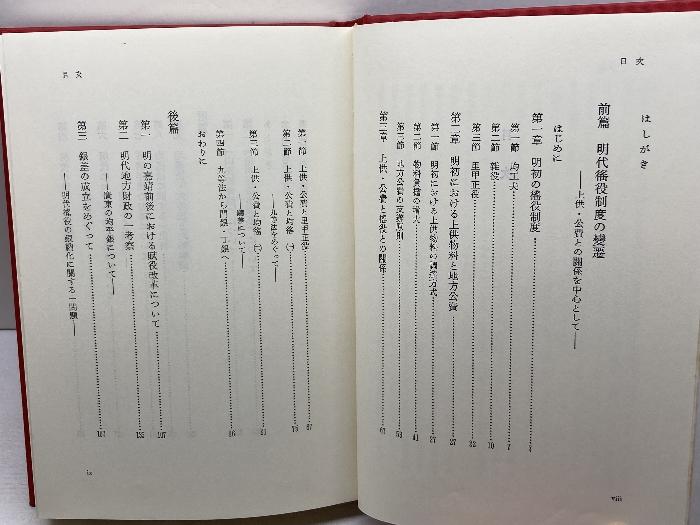 目次
はしがき
前篇 明代徭役制度の變遷
――上供・公費との関係を中心として――
はじめに
第一章 明初の徭役制度……3
第一節 均工夫……7
第二節 雜役……10
第三節 里甲正役……22
第二章 明初における上供物料と地方公費……27
第一節 明初における上供物料の調達方式……27
第二節 物料負擔の増大……41
第三節 地方公費の支辨原則……53
第三章 上供・公費と徭役との關係……67
viii
目次
第一節 上供・公費と里甲正役……67
第二節 上供・公費と均徭 (一)……75
――九等法をめぐって――
第三節 上供・公費と均徭 (二)……81
第四節 九等法から門銀・丁銀へ……86
おわりに
後篇
第一 明の嘉靖前後における賦役改革について……107
第二 明代地方財政の一考察……135
――廣東の均平銀について――
第三 銀差の成立をめぐって……161
――明代徭役の銀納化に關する一問題――
ix